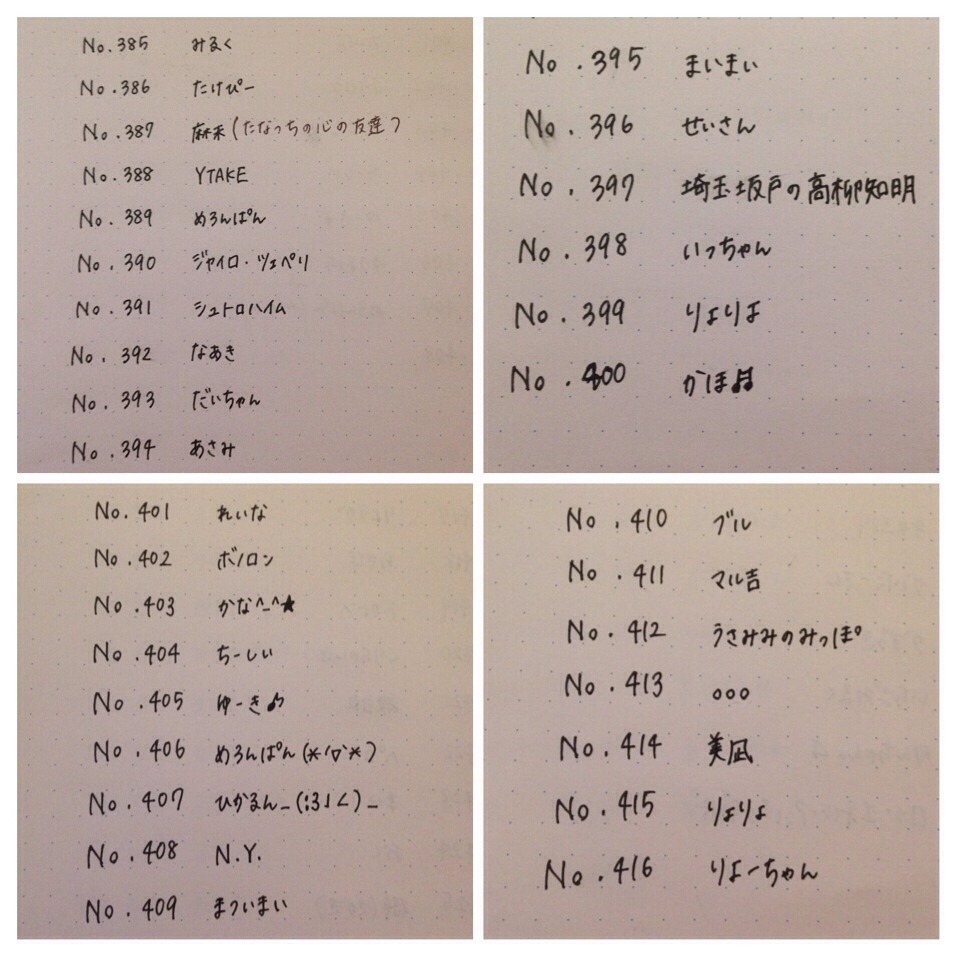 No.385 みるく
No.386 たけぴー
No.387 麻来(たなっちの心の友達)
No.388 YTAKE
No.389 めろんぱん
No.390 ジャイロ・ツェペリ
No.391 シュトロハイム
No.392 なあき
No.393 だいちゃん
No.394 あさみ
No.395 まいまい
No.396 せいさん
No.397 埼玉坂戸の高柳知明
No.398 いっちゃん
No.399 りょりょ
No.400 かほ♬
No.401 れいな
No.402 ボノロン
No.403 かな^_^★
No.404 ちーしい
No.405 ゆーき♪
No.406 めろんぱん(*´▽`*)
No.407 ひかるん_(:3」∠)_
No.408 N.Y.
No.409 まついまい
No.410 ブル
No.411 マル吉
No.412 うさみみのみっぽ
No.413 ○○○
No.414 美凪
No.415 りょりょ
No.416 りょーちゃん